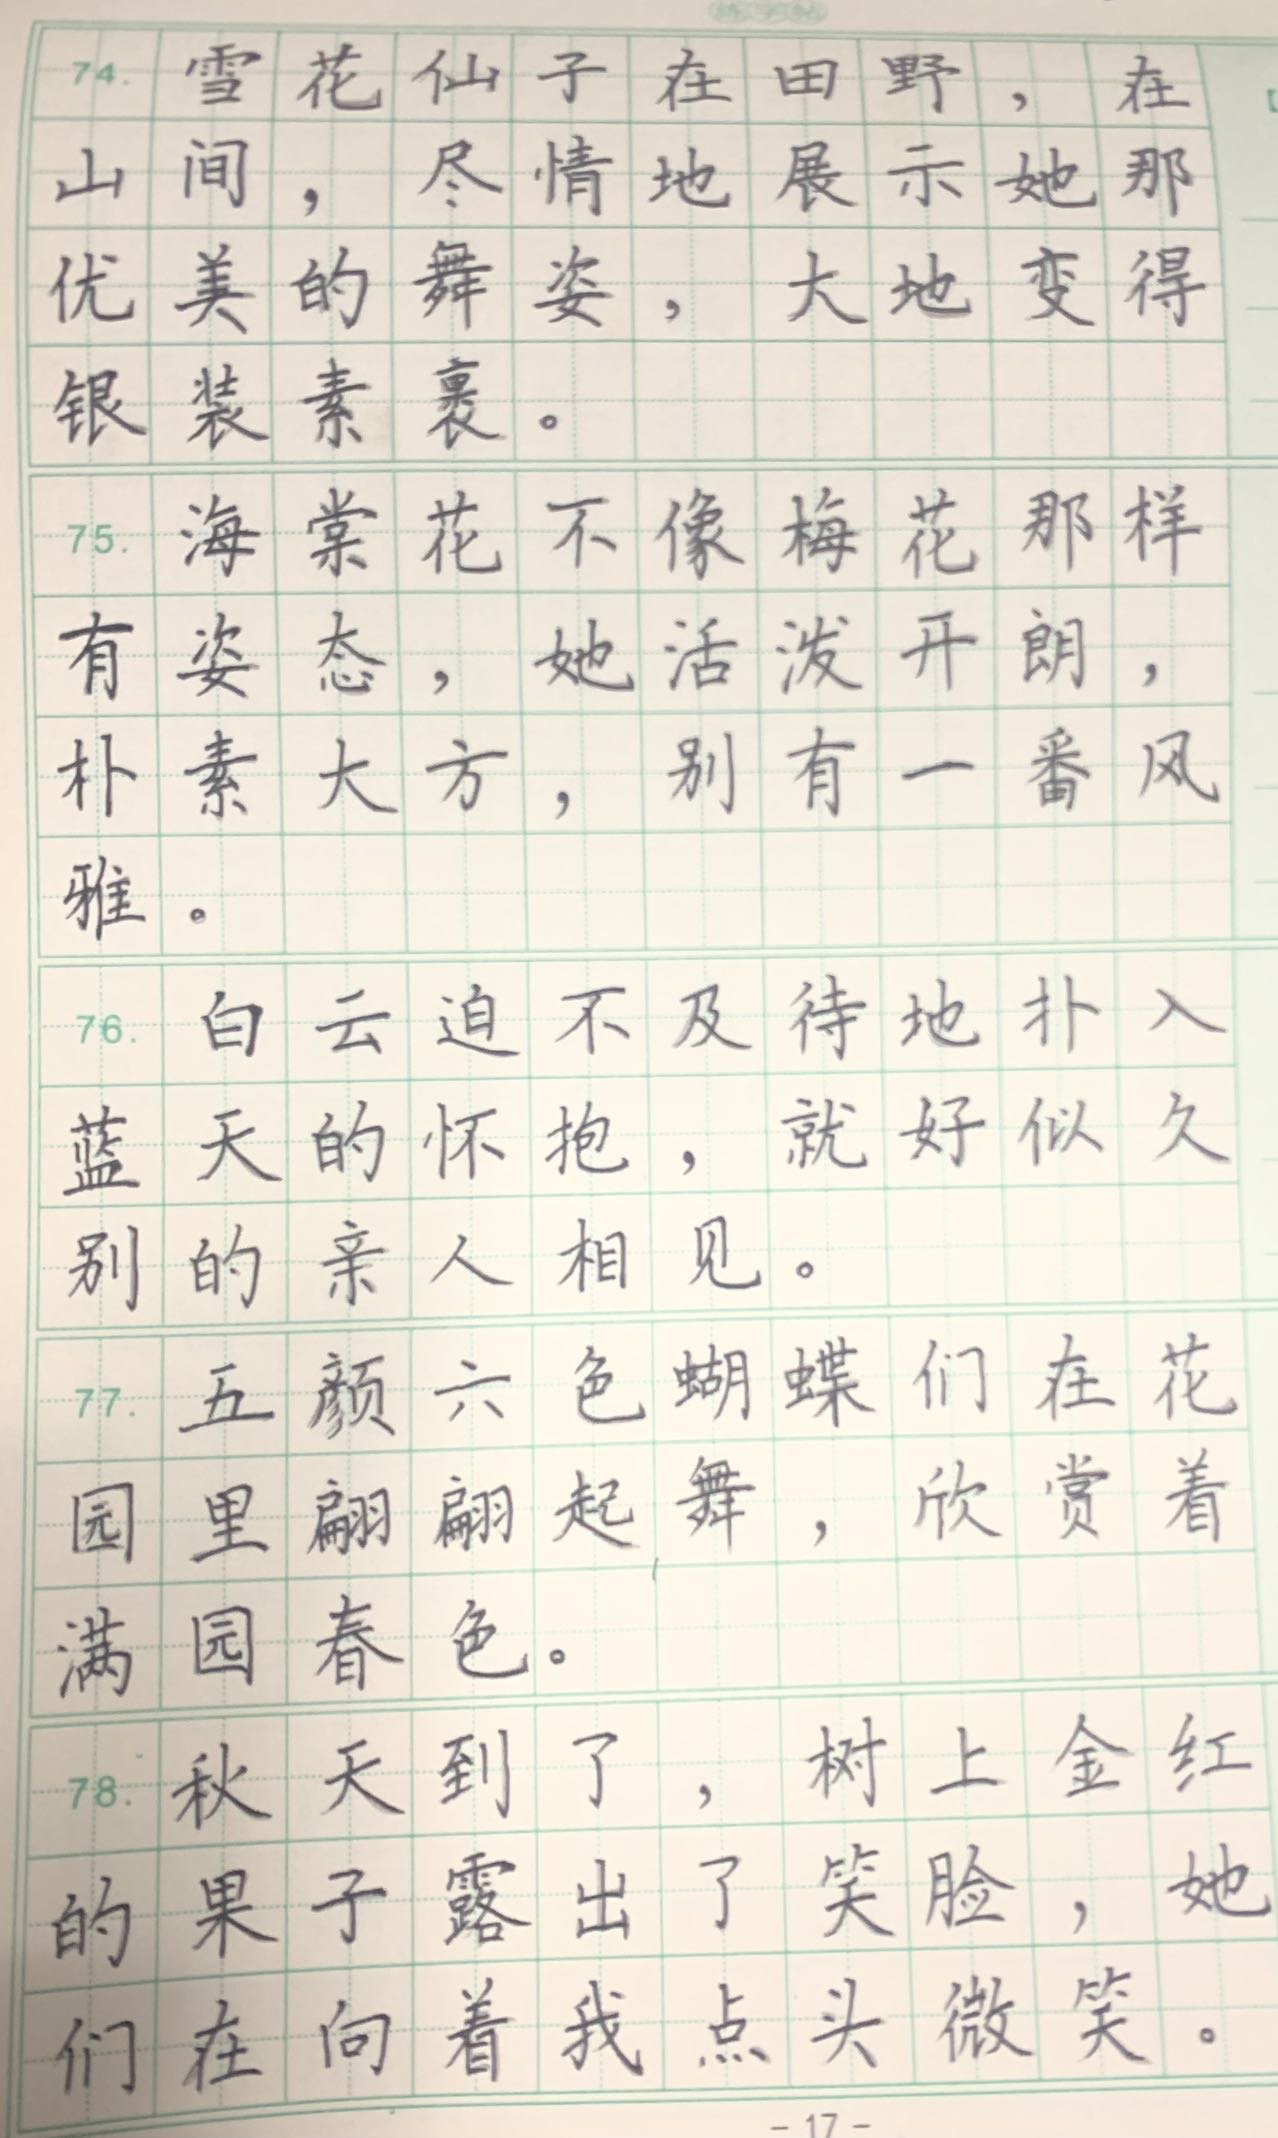 练字帖
74. 雪花仙子在田野，在
山间，尽情地展示她那
优美的舞姿，大地变得
银装素裹。
75. 海棠花不像梅花那样
有姿态，她活泼开朗，
朴素大方，别有一番风
雅。
76. 白云迫不及待地扑入
蓝天的怀抱，就好似久
别的亲人相见。
77. 五颜六色蝴蝶们在花
园里翩翩起舞，欣赏着
满园春色。
78. 秋天到了，树上金红
的果子露出了笑脸，她
们在向着我点头微笑。
- 17 -